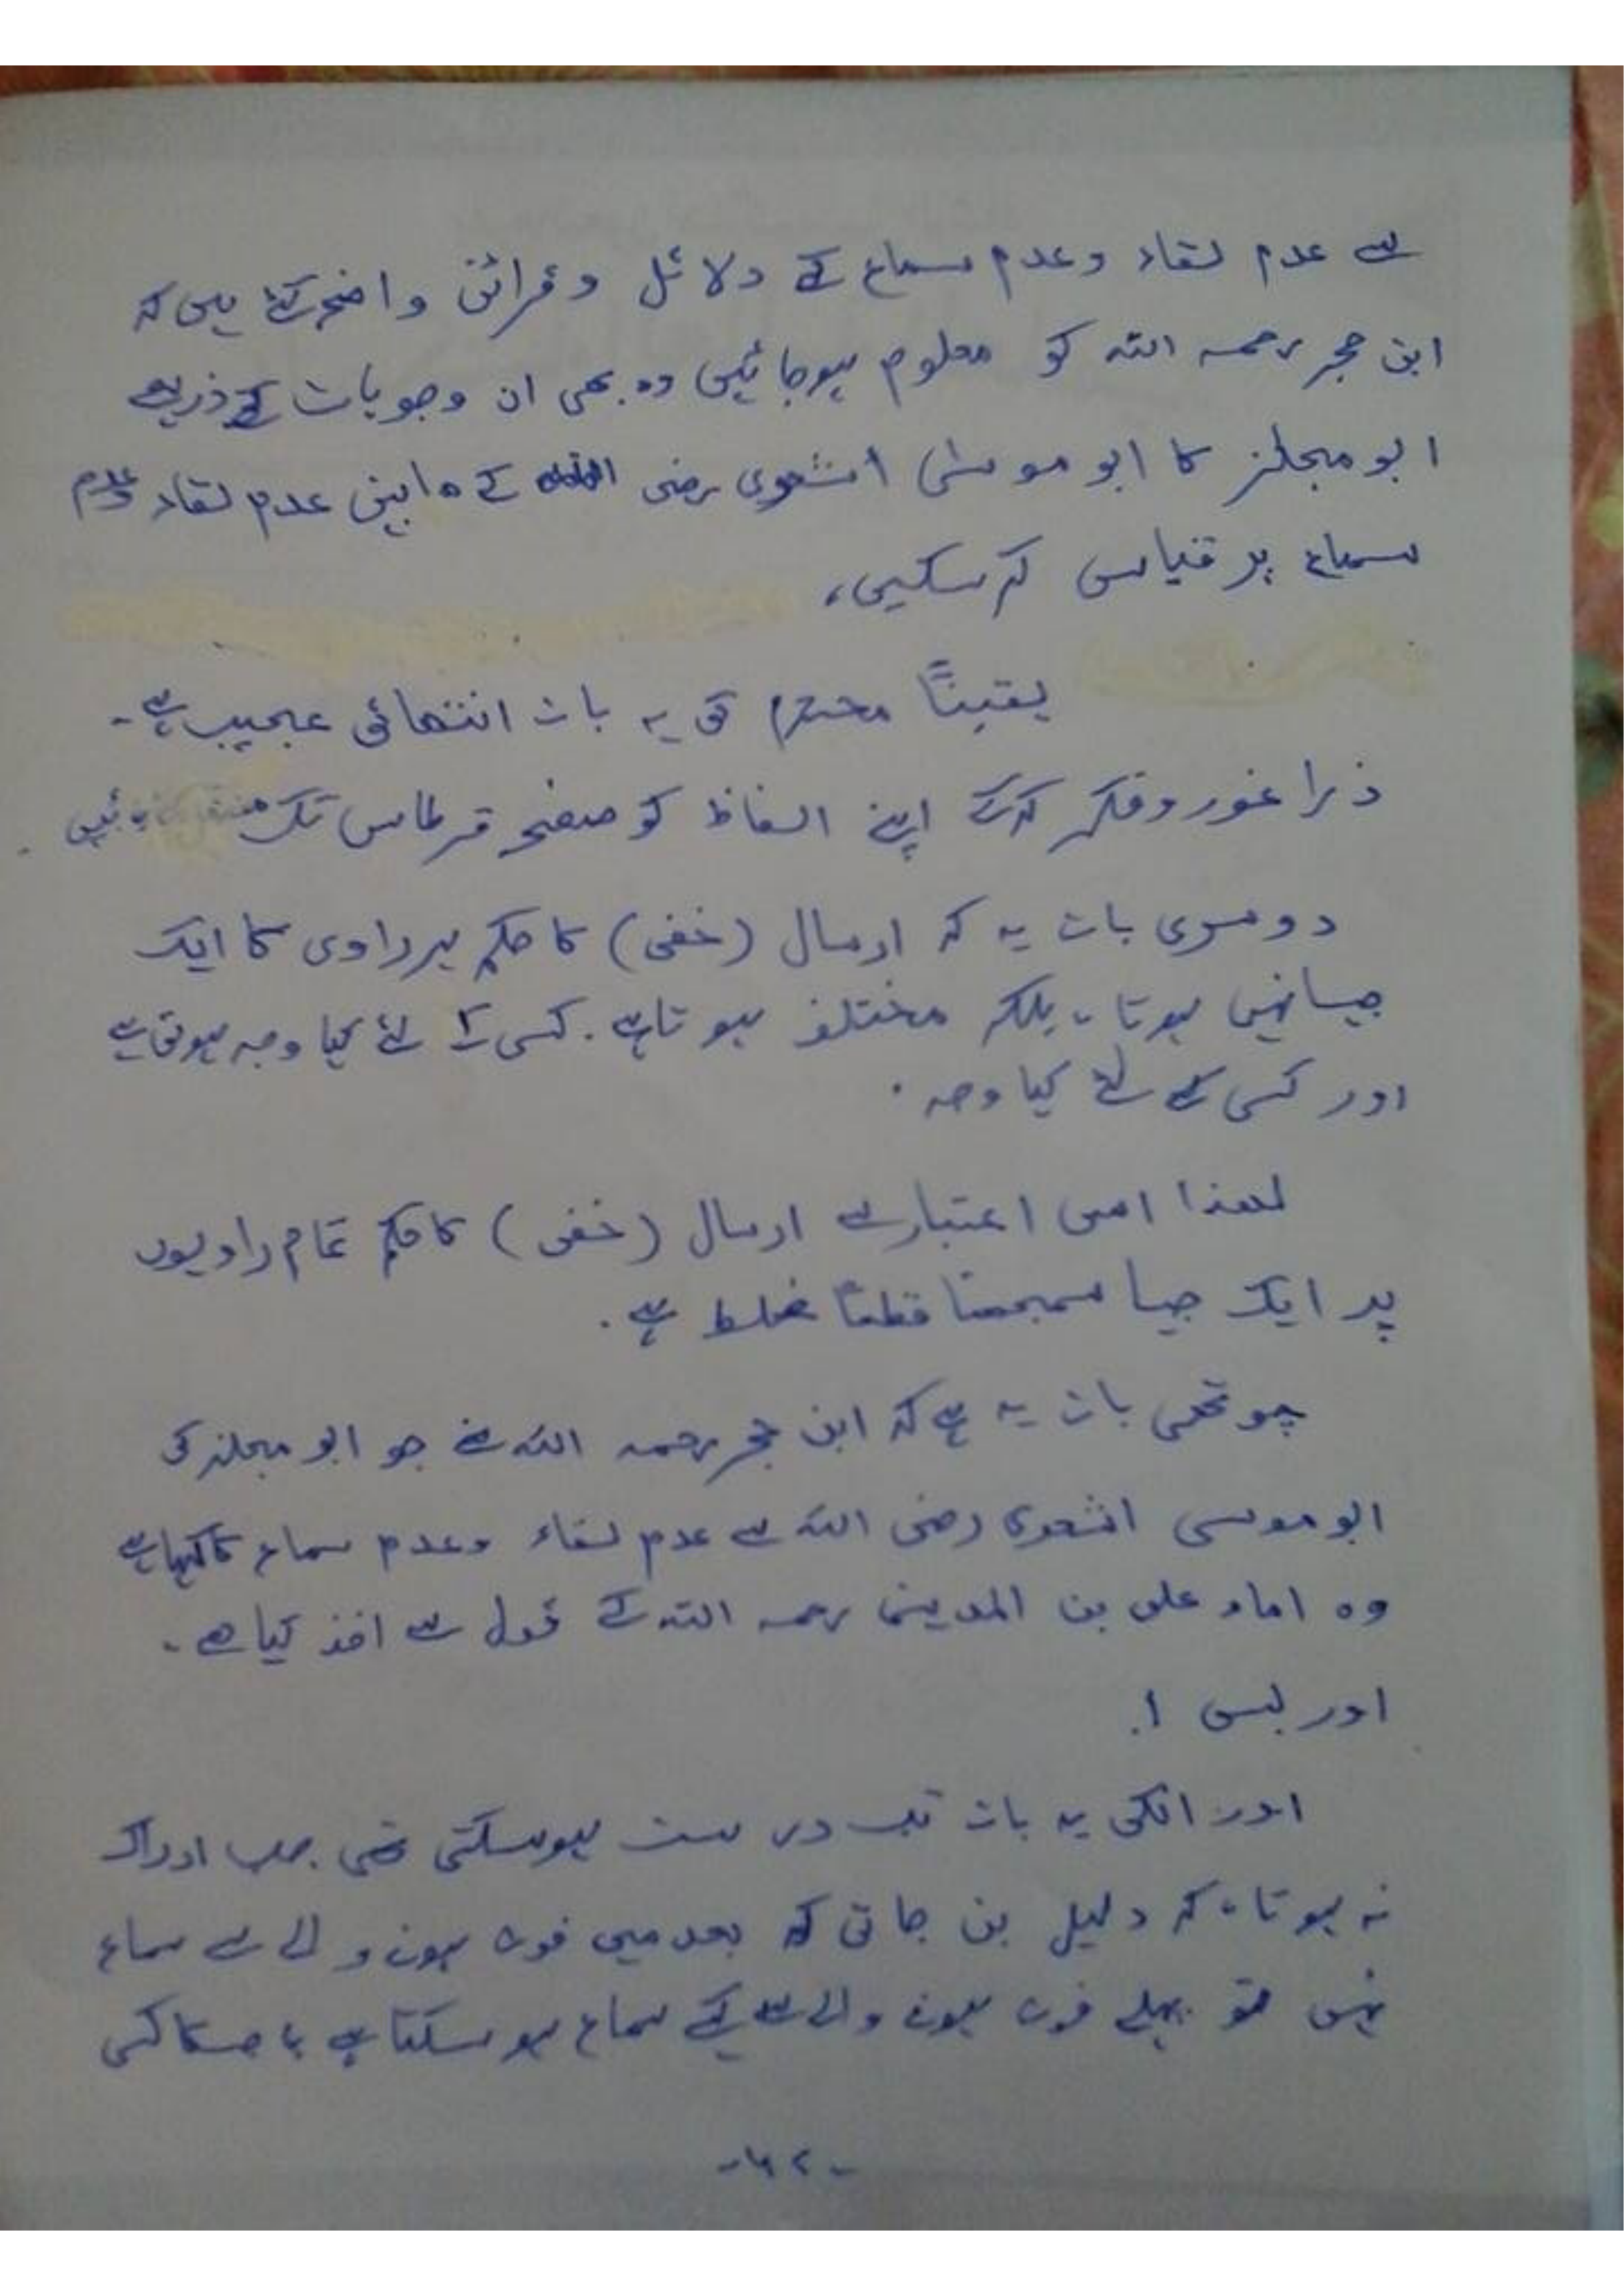 سے عدم لقاء وعدم سماع کے دلائل وقرائن واضح کئے ہیں کہ
ابن حجر رحمہ اللہ کو معلوم ہوجائیں وہ بھی ان وجوہات کے ذریعے
ابو مجلز کا ابو موسٰی أشعری رضی اللہ کے مابین عدم لقاء وعدم
سماع پر قیاس کرسکیں،
یقیناً محترم کی یہ بات انتھائی عجیب ہے۔
ذرا غور وفکر کرکے اپنے الفاظ کو صفحہ قرطاس تک
دوسری بات یہ کہ ارسال (خفی) کا حکم ہر راوی کا ایک
جیسا نہیں ہوتا، بلکہ مختلف ہوتا ہے۔ کسی کے لئے کیا وجہ ہوتی ہے
اور کسی کے لئے کیا وجہ۔
لھذا اسی اعتبار سے ارسال (خفی) کا حکم تمام راویوں
پر ایک جیسا سمجھنا قطعاً غلط ہے۔
چوتھی بات یہ ہے کہ ابن حجر رحمہ اللہ نے جو ابو مجلز کی
ابو موسی اشعری رضی اللہ سے عدم لقاء وعدم سماع کا کہا ہے
وہ امام علی بن المدینی رحمہ اللہ کے قول سے اخذ کیا ھے۔
اور بس !.
اور انکی یہ بات تب درست ہوسکتی تھی جب ادراک
نہ ہوتا، کہ دلیل بن جاتی کہ بعد میں فوت ہونے والے سے سماع
نہیں تو پہلے فوت ہونے والے سے کیسے سماع ہو سکتا ہے
-۶۲-